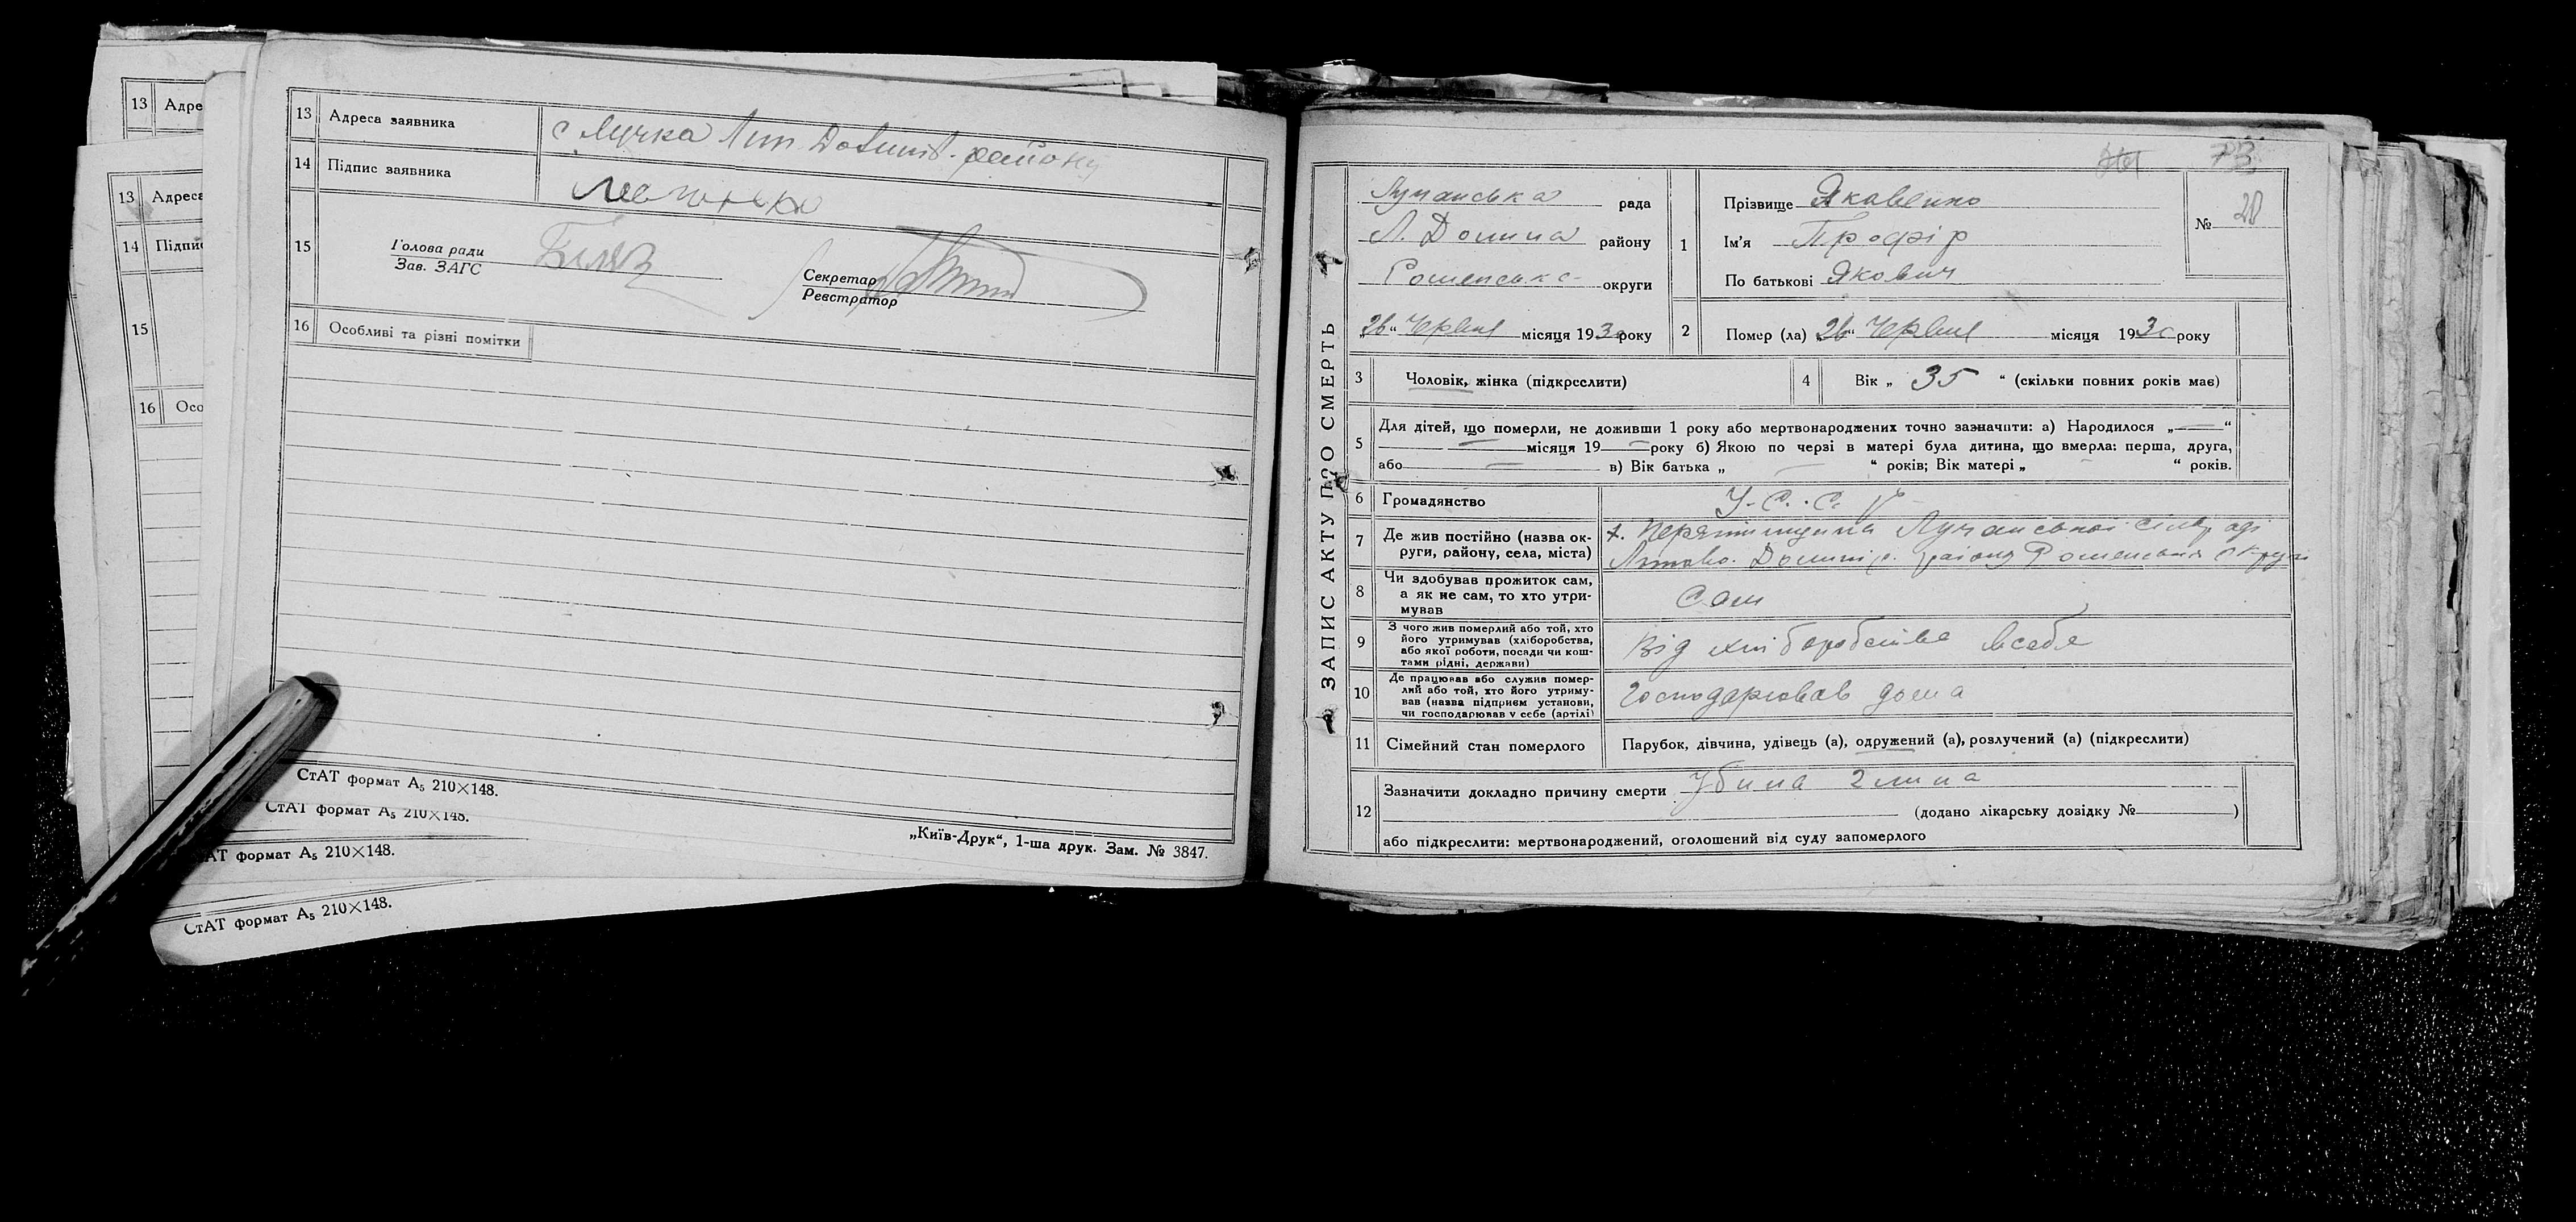 13 Адре
13 Адреса
14 Підпис
15
16 Осо
13 Адреса заявника с Лучка Лип Долинсв. району
14 Підпис заявника
15 Голова ради
Зав. ЗАГС
Секретар
Реєстратор
16 Особливі та різні помітки
СтАТ формат А5 210×148.
СтАТ формат А5 210×148.
„Київ-Друк“, 1-ша друк. Зам. № 3847.
АТ формат А5 210×148.
СтАТ формат А5 210×148.
73
ЗАПИС АКТУ ПРО СМЕРТЬ
Лучанська рада
Л. Долина району
Роменська округи
„26“ Червня місяця 1930 року
1 Прізвище Яковенко
Ім'я Профір
По батькові Якович
№ 28
2 Помер (ла) 26“ Червня місяця 1930 року
3 Чоловік, жінка (підкреслити)
4 Вік „ 35 “ (скільки повних років має)
5 Для дітей, що померли, не доживши 1 року або мертвонароджених точно зазначити: а) Народилося „—“
— місяця 19—року б) Якою по черзі в матері була дитина, що вмерла: перша, друга,
або — в) Вік батька „ — “ років; Вік матері „ “ років.
6 Громадянство У.С.С.Р
7 Де жив постійно (назва округи, району, села, міста) х. Перятищина Лучанської сільради
Липово-Долинс. району Роменської округи
8 Чи здобував прожиток сам, а як не сам, то хто утримував Сам
9 З чого жив померлий або той, хто його утримував (хліборобства, або якої роботи, посади чи коштами рідні, держави) Від хліборобства в себе
10 Де працював або служив померлий або той, хто його утримував (назва підприєм установи, чи господарював у себе (артілі) Господарював дома
11 Сімейний стан померлого Парубок, дівчина, удівець (а), одружений (а), розлучений (а) (підкреслити)
12 Зазначити докладно причину смерти Убила глина
(додано лікарську довідку № )
або підкреслити: мертвонароджений, оголошений від суду запомерлого